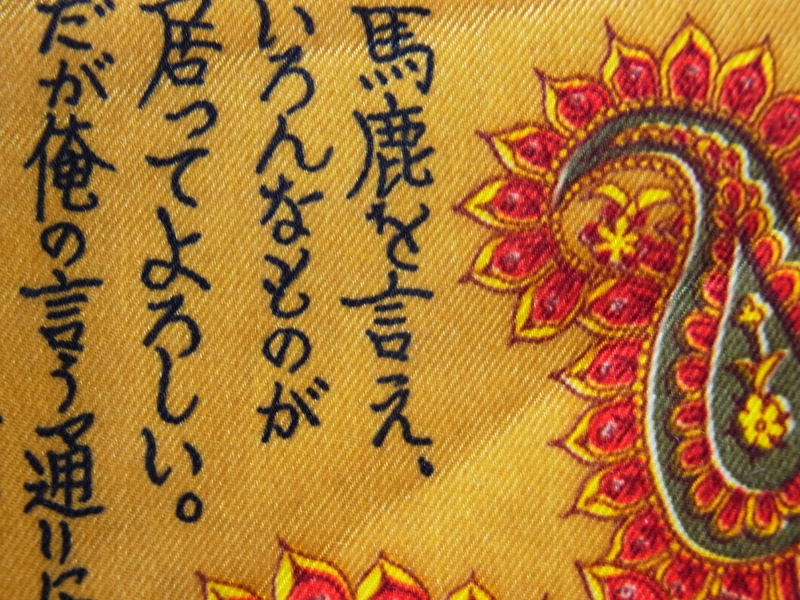 馬鹿を言え、
いろんなものが
居ってよろしい。
だが俺の言う通りに